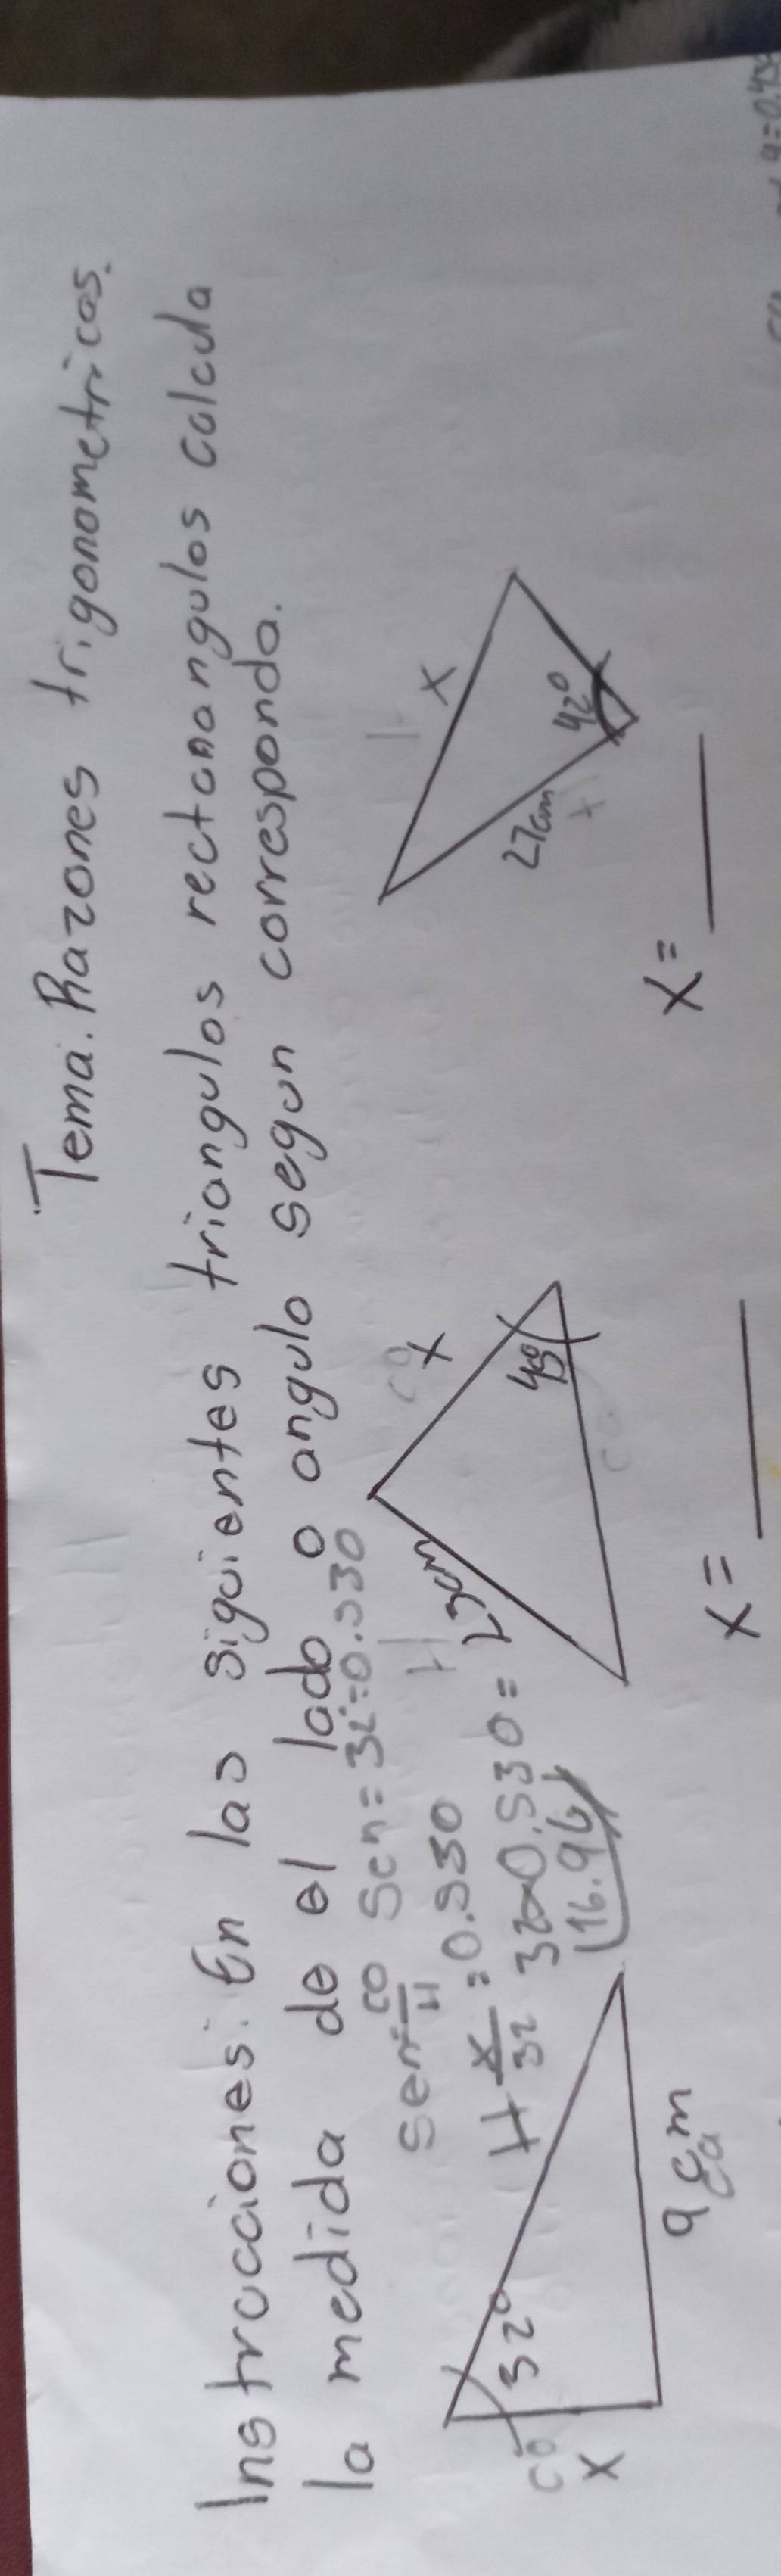 Tema. Razones trigonometricas.
Instrucciones: En las siguientes triangulos rectanangulos calcula
la medida de el lado o angulo segun corresponda.
sen=co/H sen=32=0.530
H x/32=0.530
32x0.530=
16.96
32°
co
x
9cm
ca
H
13cm
co
x
49°
x=
H
x
27cm
42°
x=